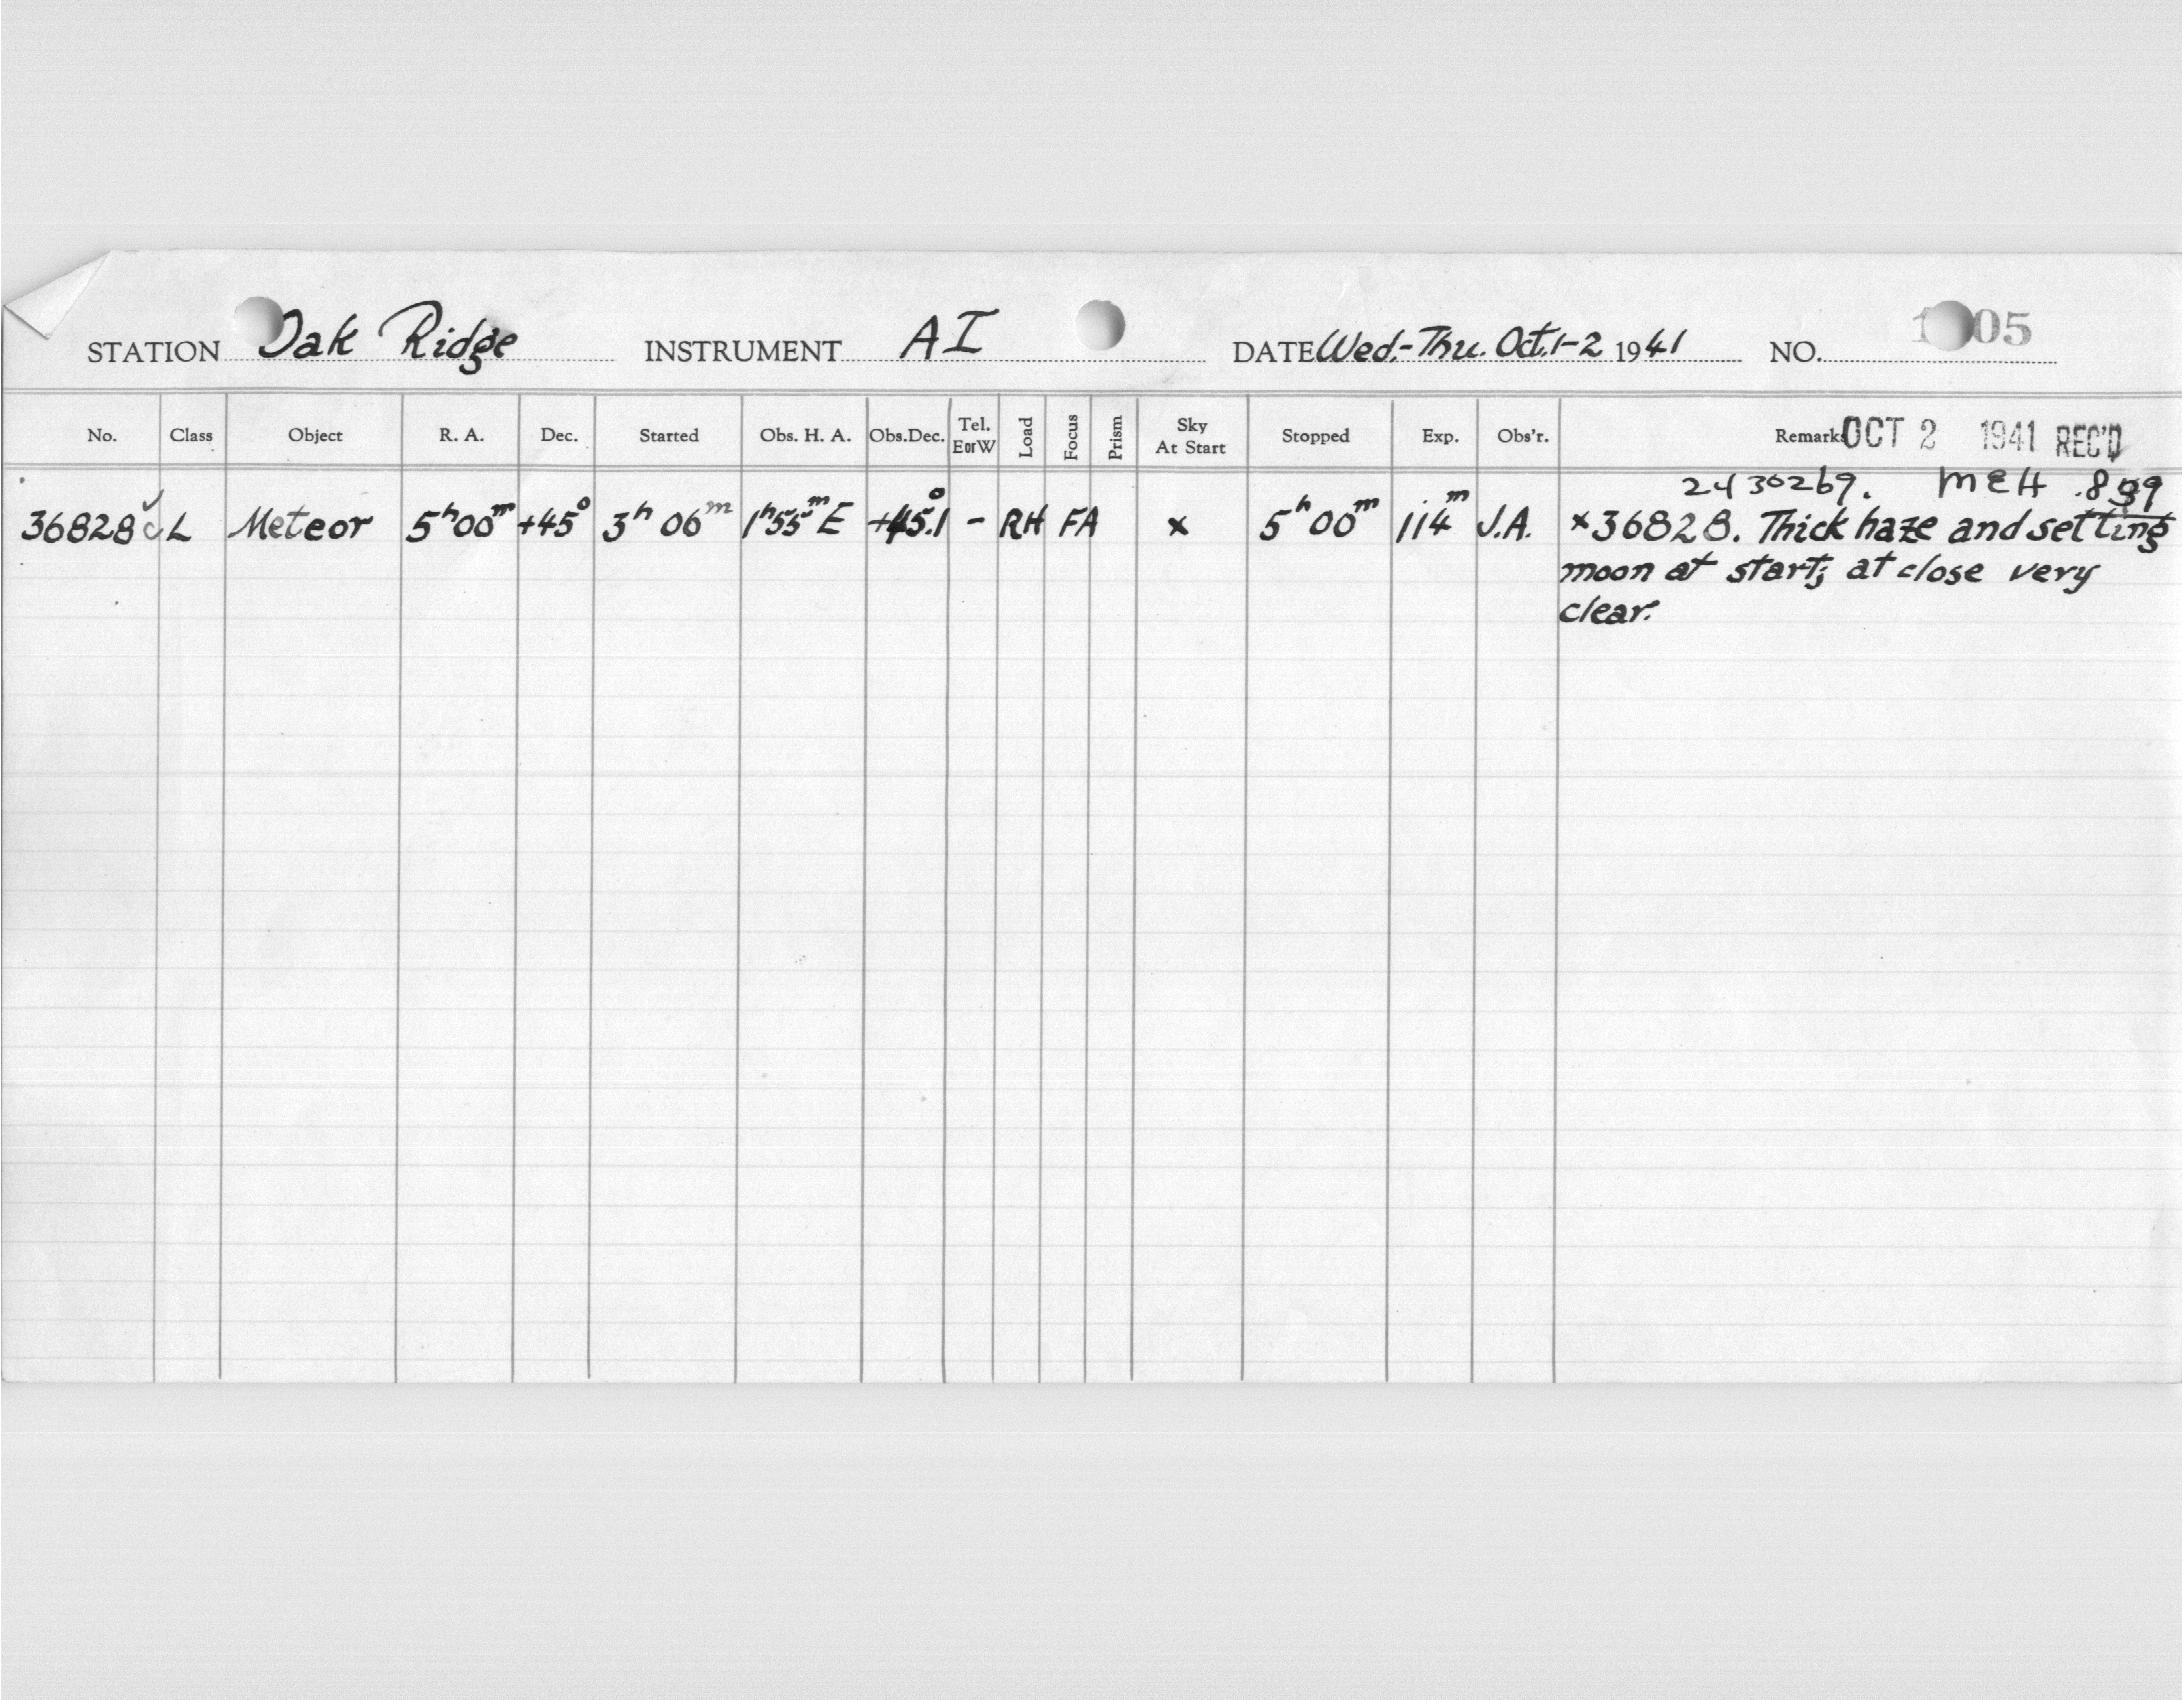 STATION Oak Ridge INSTRUMENT AI DATE Wed.-Thu. Oct. 1-2 1941 NO. 05
No. Class Object R. A. Dec. Started Obs. H. A. Obs.Dec. Tel. E or W Load Focus Prism Sky At Start Stopped Exp. Obs'r. Remarks OCT 2 1941 REC'D
2430269. MEH
36828 c L Meteor 5h00m +45° 3h 06m 1h55m E +45.1° - RH FA x 5h00m 114m J.A. x36828. Thick haze and setting
moon at start; at close very
clear.